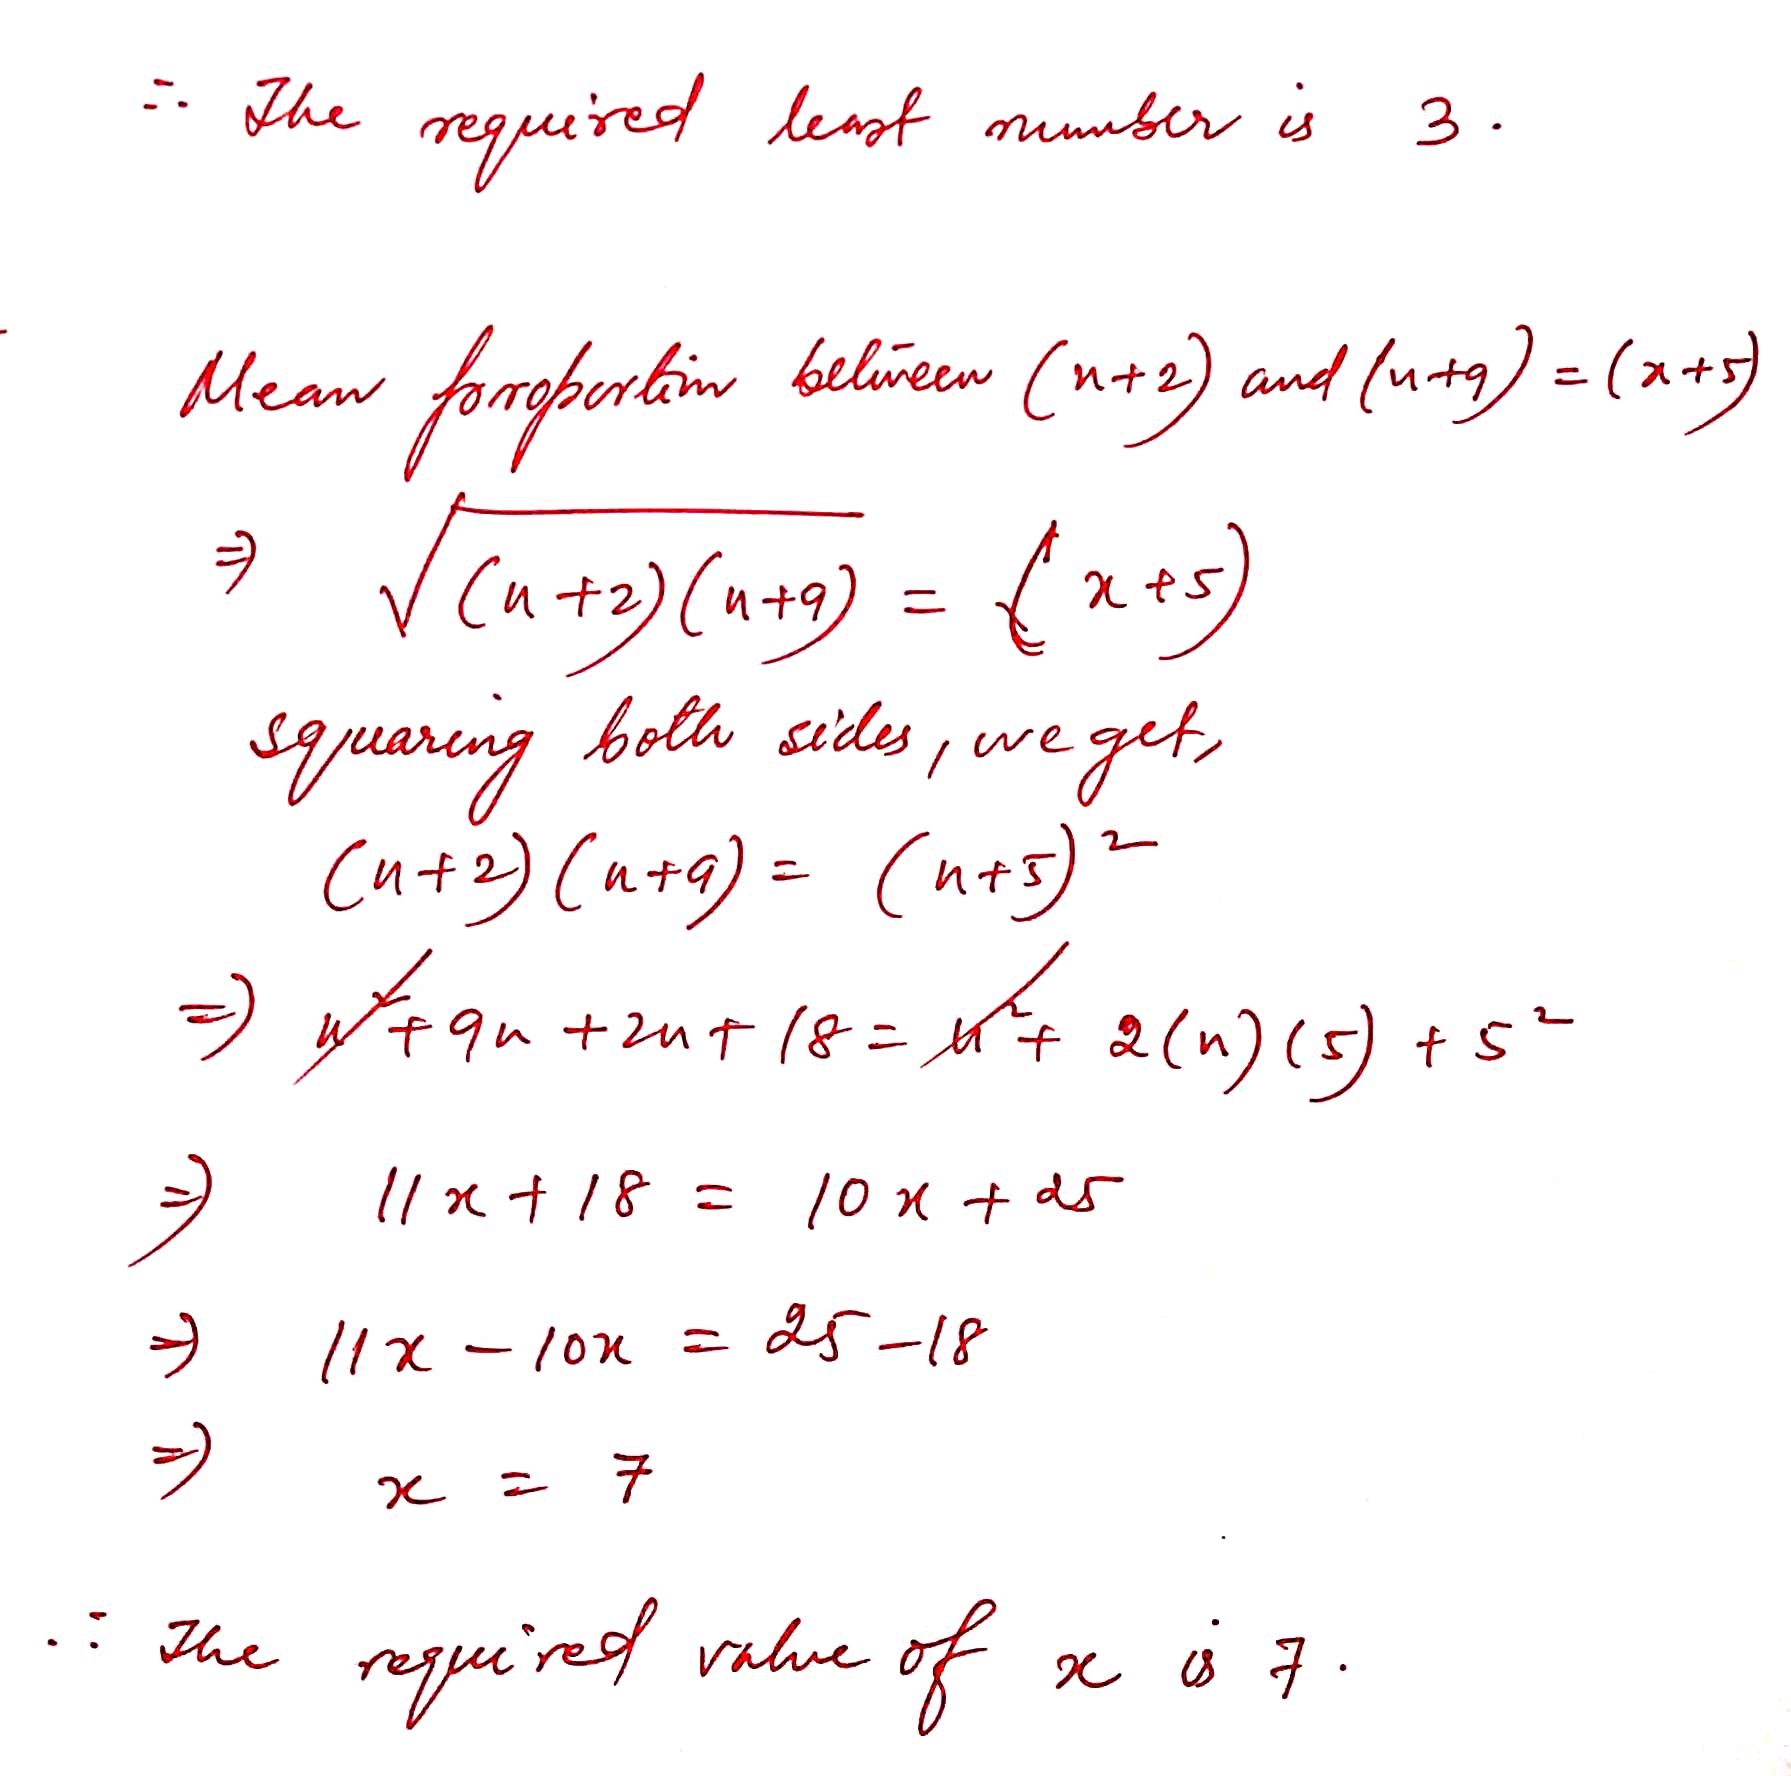 ∴ The required least number is 3.
Mean proportion between (x+2) and (x+9) = (x+5)
⇒ √(x+2)(x+9) = (x+5)
squaring both sides, we get,
(x+2)(x+9) = (x+5)²
⇒ x² + 9x + 2x + 18 = x² + 2(x)(5) + 5²
⇒ 11x + 18 = 10x + 25
⇒ 11x – 10x = 25 – 18
⇒ x = 7
∴ The required value of x is 7.